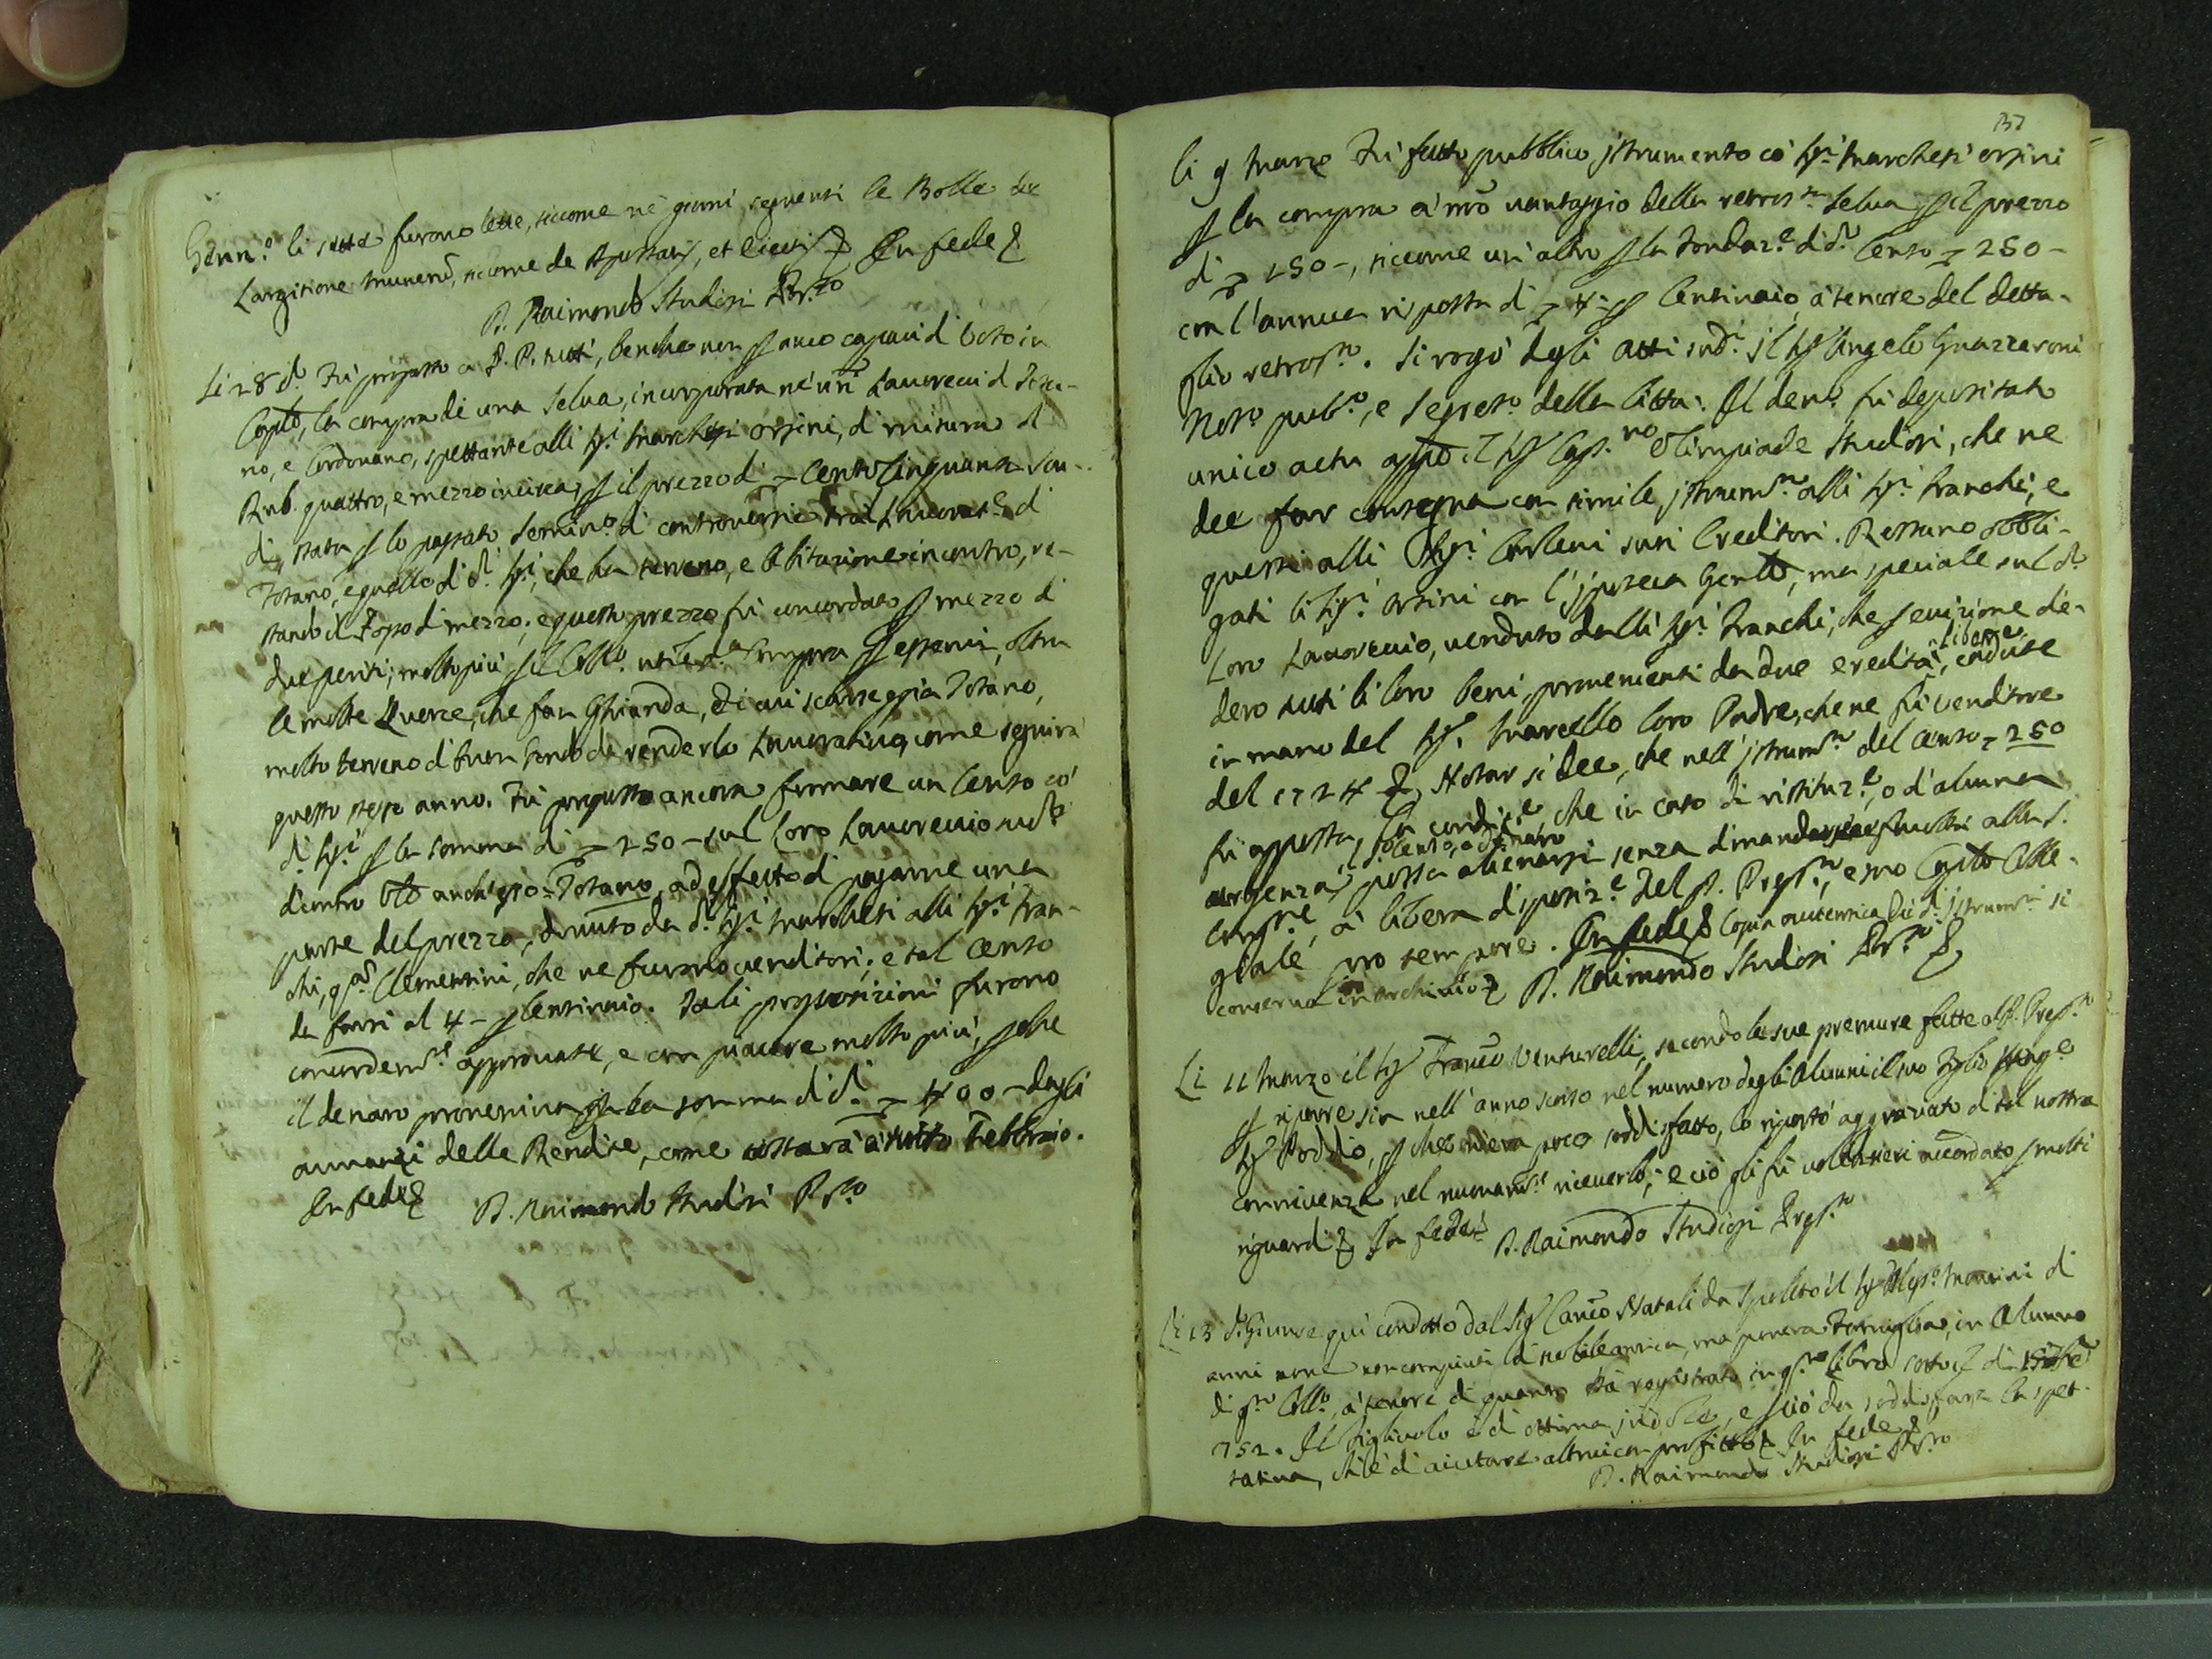 Genn.o li sette furono lette, siccome ne' giorni seguenti le Bolle de
Largitione munerũ, siccome de Apostatis, et eiectis In fede
P. Raimondo Studiosi
Li 28 d.o Fù proposto a P. P. tutti, benche non anco capaci di Voto in
Capitõ, la compra di una Selva, incorporata ne' nr̃i Lavorecci di Tota-
no, e Cordonano, spettante alli Sig.i Marchesi Orsini, di misura di
Rub. quattro, e mezzo incirca, p il prezzo di Cento Cinquanta scu-
di, stata p lo passato Semin.o di controversie trà i Lavorat.i di
Totano, e quello di d.i Sig.i, che han terreno, e Abitazione incontro, re-
stando il Fosso di mezzo; e questo prezzo fù concordato p mezzo di
due periti; molto più p il Coll.o compra p esservi, oltra
le molte Querce, che fan Ghianda, di cui scarseggia Totano,
molto terreno di buon fondo da renderlo Lavorativo, come seguirà
questo stesso anno. Fù proposto ancora formare un Censo cò
d.i Sig.i p la somma di 250 - sul loro Lavoreccio
dentro anch'esso Totano, ad effetto di pagarne una
parte del prezzo, dovuto da d.i Sig.i Marchesi alli Sig.i Fran-
chi, Clementini, che ne furono venditori; e tal Censo
da farsi al 4 - p Centinaio. Tali proposizioni furono
concordem.te approvate, e con piacere molto più, p che
il denaro proveniva p la somma di d.i 400 - dagli
avvanzi delle Rendite, come costarà a tutto Febbraio.
In fede P. Raimondo Studiosi
137
li 9 Marzo Fù fatto pubblico jstrumento cò Sig.i Marchesi Orsini
p la compra à nr̃o vantaggio della retros.ta Selva p il prezzo
di 150 -, siccome un'altro p la Fondaz.e di d.o Censo 250 -
con l'annua risposta di 4 - p Centinaio, à tenore del detta-
glio retros.to. Si rogò degli Atti sud.i jl Sig Angelo Guazzaroni
Not.o pub.o, e Segret.o della Città. Il den.o fù depositato
unico actu il Sig Cap.no Olimpiade Studiosi, che ne
dee far consegna con simile jstrum.to alli Sig.i Franchi, e
questi alli Sig.i suoi Creditori. Restano obbli-
gati li Sig.i Orsini con l'jpoteca Genlẽ, ma speciale sul d.o
loro Lavoreccio, venduto dalli Sig.i Franchi, che p evizione die-
dero tutti li loro beni, provenienti da due eredità, libere, cadute
in mano del Sig. Marcello loro Padre, che ne fù venditore
del 1724 Notar si dee, che nell'jstrum.to del Censo 250
fù apposta la condiz.e, che in caso di restituz.e, o d'alcuna
urgenza, il Censo, o denaro possa alienarsi senza dimandarsene facoltà alla S.
Cong.ne, à libera disposiz.e del P. Prep.to, e suo Capitõ Colle-
giale pro tempore. In fede Copia autentica di d.i jstrum.ti si
conserva in Archivio P. Raimondo Studiosi
Li 11 Marzo il Sig Francõ Venturelli, secondo le sue premure fatte al P. Prep.to
p riporre sin nell'anno scorso nel numero degli Alunni il suo Figlio
Sig Poddio, p che poco soddisfatto, lo riportò aggravato di tal nostra
connivenza nel nuovam.te riceverlo; e ciò gli fù volentieri accordato p molti
riguardi In fede P. Raimondo Studiosi Prep.to
Li 13 d.o Giunse qui condotto dal Sig Canco Natali da Spolleto il Sig Mancini di
anni nove non compiuti di nobile antica, ma povera Famiglia, in Alunno
di q.to Coll.o, à tenore di quanto stà registrato in q.sto libro sotto li di
752. Il Figliuolo è di ottima jndole, e p ciò da soddisfare la spet-
tativa, ch'è di aiutare altrui con profitto In fede
P. Raimondo Studiosi